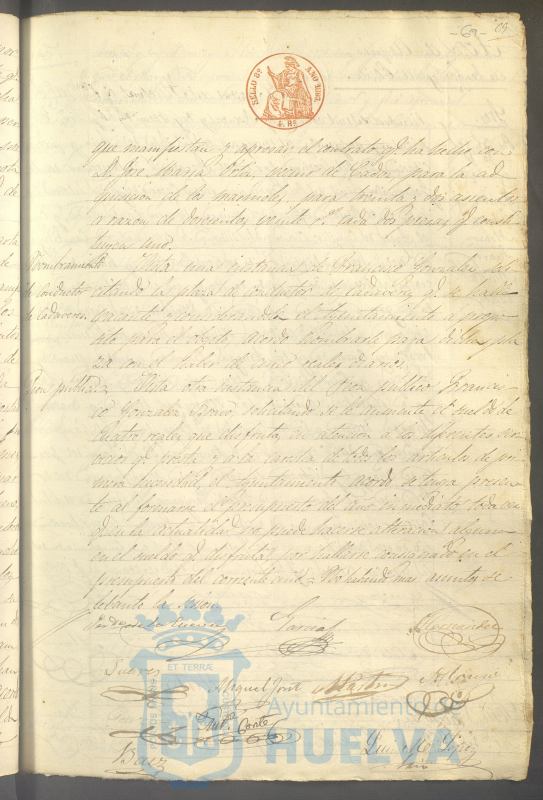 -69- 69
SELLO 8º AÑO 1862
4 Rs
que manifiestan y aprovar el contrato qe. ha hecho con
D. José María vecino de Cadiz para la ad
quisicion de los marmoles, para treinta y dos asientos
a razon de doscientos veinte rs. cada dos piezas qe. consti
tuyen uno.
Nombramiento de conductor de Cadaveres
Vista una instancia de Francisco Gonzalez soli
citando la plaza de conductor de cadaveres qe. se halla
vacante y considerandole el Ayuntamiento a propo
sito para el objeto acordó nombrarle para dicha pla
za con el haber de cinco reales diarios.
Peon publico
Vista otra instancia del Peon publico Francis
co Gonzalez Bravo, solicitando se le aumente el sueldo de
cuatro reales que disfruta, en atencion a los diferentes ser
vicios qe. presta y a la carestia de todos los articulos de pri
mera necesidad, el Ayuntamiento acordó se tenga presen
te al formarse el presupuesto del año inmediato toda vez
qe. en la actualidad no puede hacerse alteracion alguna
en el sueldo qe. disfruta, por hallarse consignado en el
presupuesto del corriente año = No habiendo mas asuntos se
lebantó la sesion
Garcia Hernandez
Suarez Miguel José Martin Alonso
Anto. Conte
Baez Luis Mª Lopez
ET TERRÆ
Ayuntamiento de
HUELVA